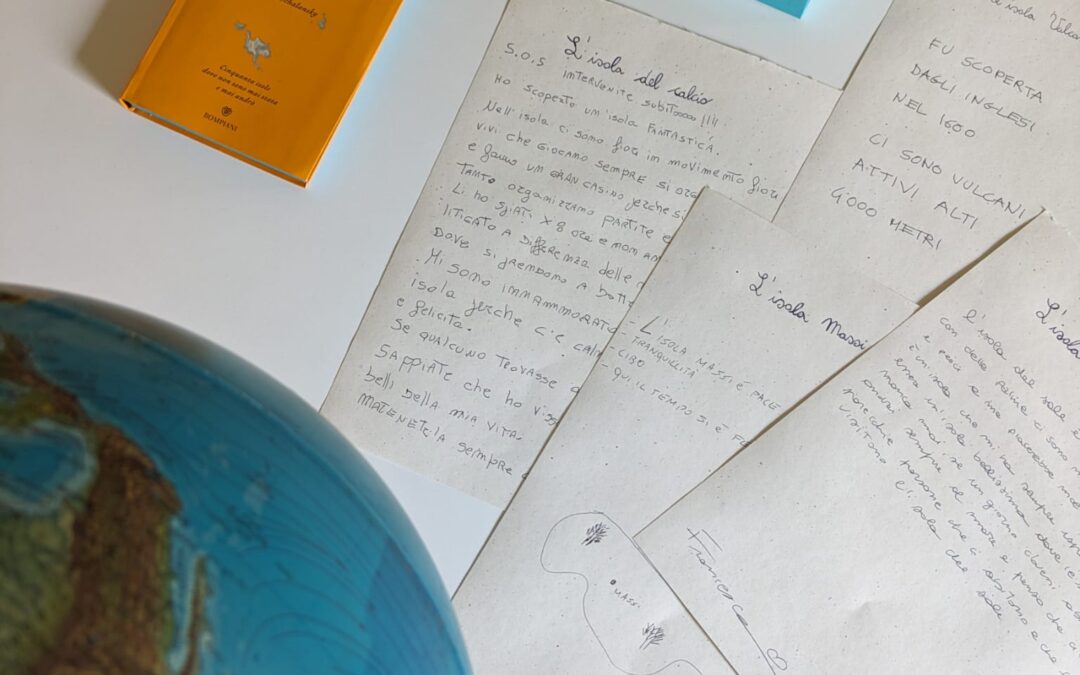 Schalansky
Cinquanta isole
dove non sono mai stata
e mai andrò
BOMPIANI
L'isola del calcio
S.O.S INTERVENITE SUBITOOOOO !!!!
HO SCOPERTO UM ISOLA FANTASTICA.
Nell'isola ci somo fiori im movimento fiori
vivi che GIOCAMO SEMPRE si
e fanno UM GRAN CASINO perche si
TANTO ORGAMIZZAMO PARTITE e
Li ho SPIATI X 8 ore e mom
LITIGATO A DIFFERENZA delle
DOVE SI PREMDOMO A BOTTE
Mi SOMO IMMAMMORATO
ISOLA perche c'è
e felicita.
Se QUALCUNO TROVASSE
SAPPIATE che ho
belli DELLA MIA VITA.
MATENETELA SEMPRE
isola
FU SCOPERTA
DAGLI INGLESI
NEL 1600
CI SONO VULCANI
ATTIVI ALTI
4'000 METRI
L'isola Massi
- L'ISOLA MASSI È PACE
TRANQUILLITÀ
- CIBO
- QUI IL TEMPO SI È
MASSI
L'isola
l'isola del sole è
con delle palme ci sono
e pesci a me piacerebbe
È un isola che mi ha sempre
essere un'isola bellissima dove
manca mai, se un giorno dovessi
andrei sempre al mare e penso che
poicchie persone che ci abitano e che
visitano l'isola del
sole
Francesca B